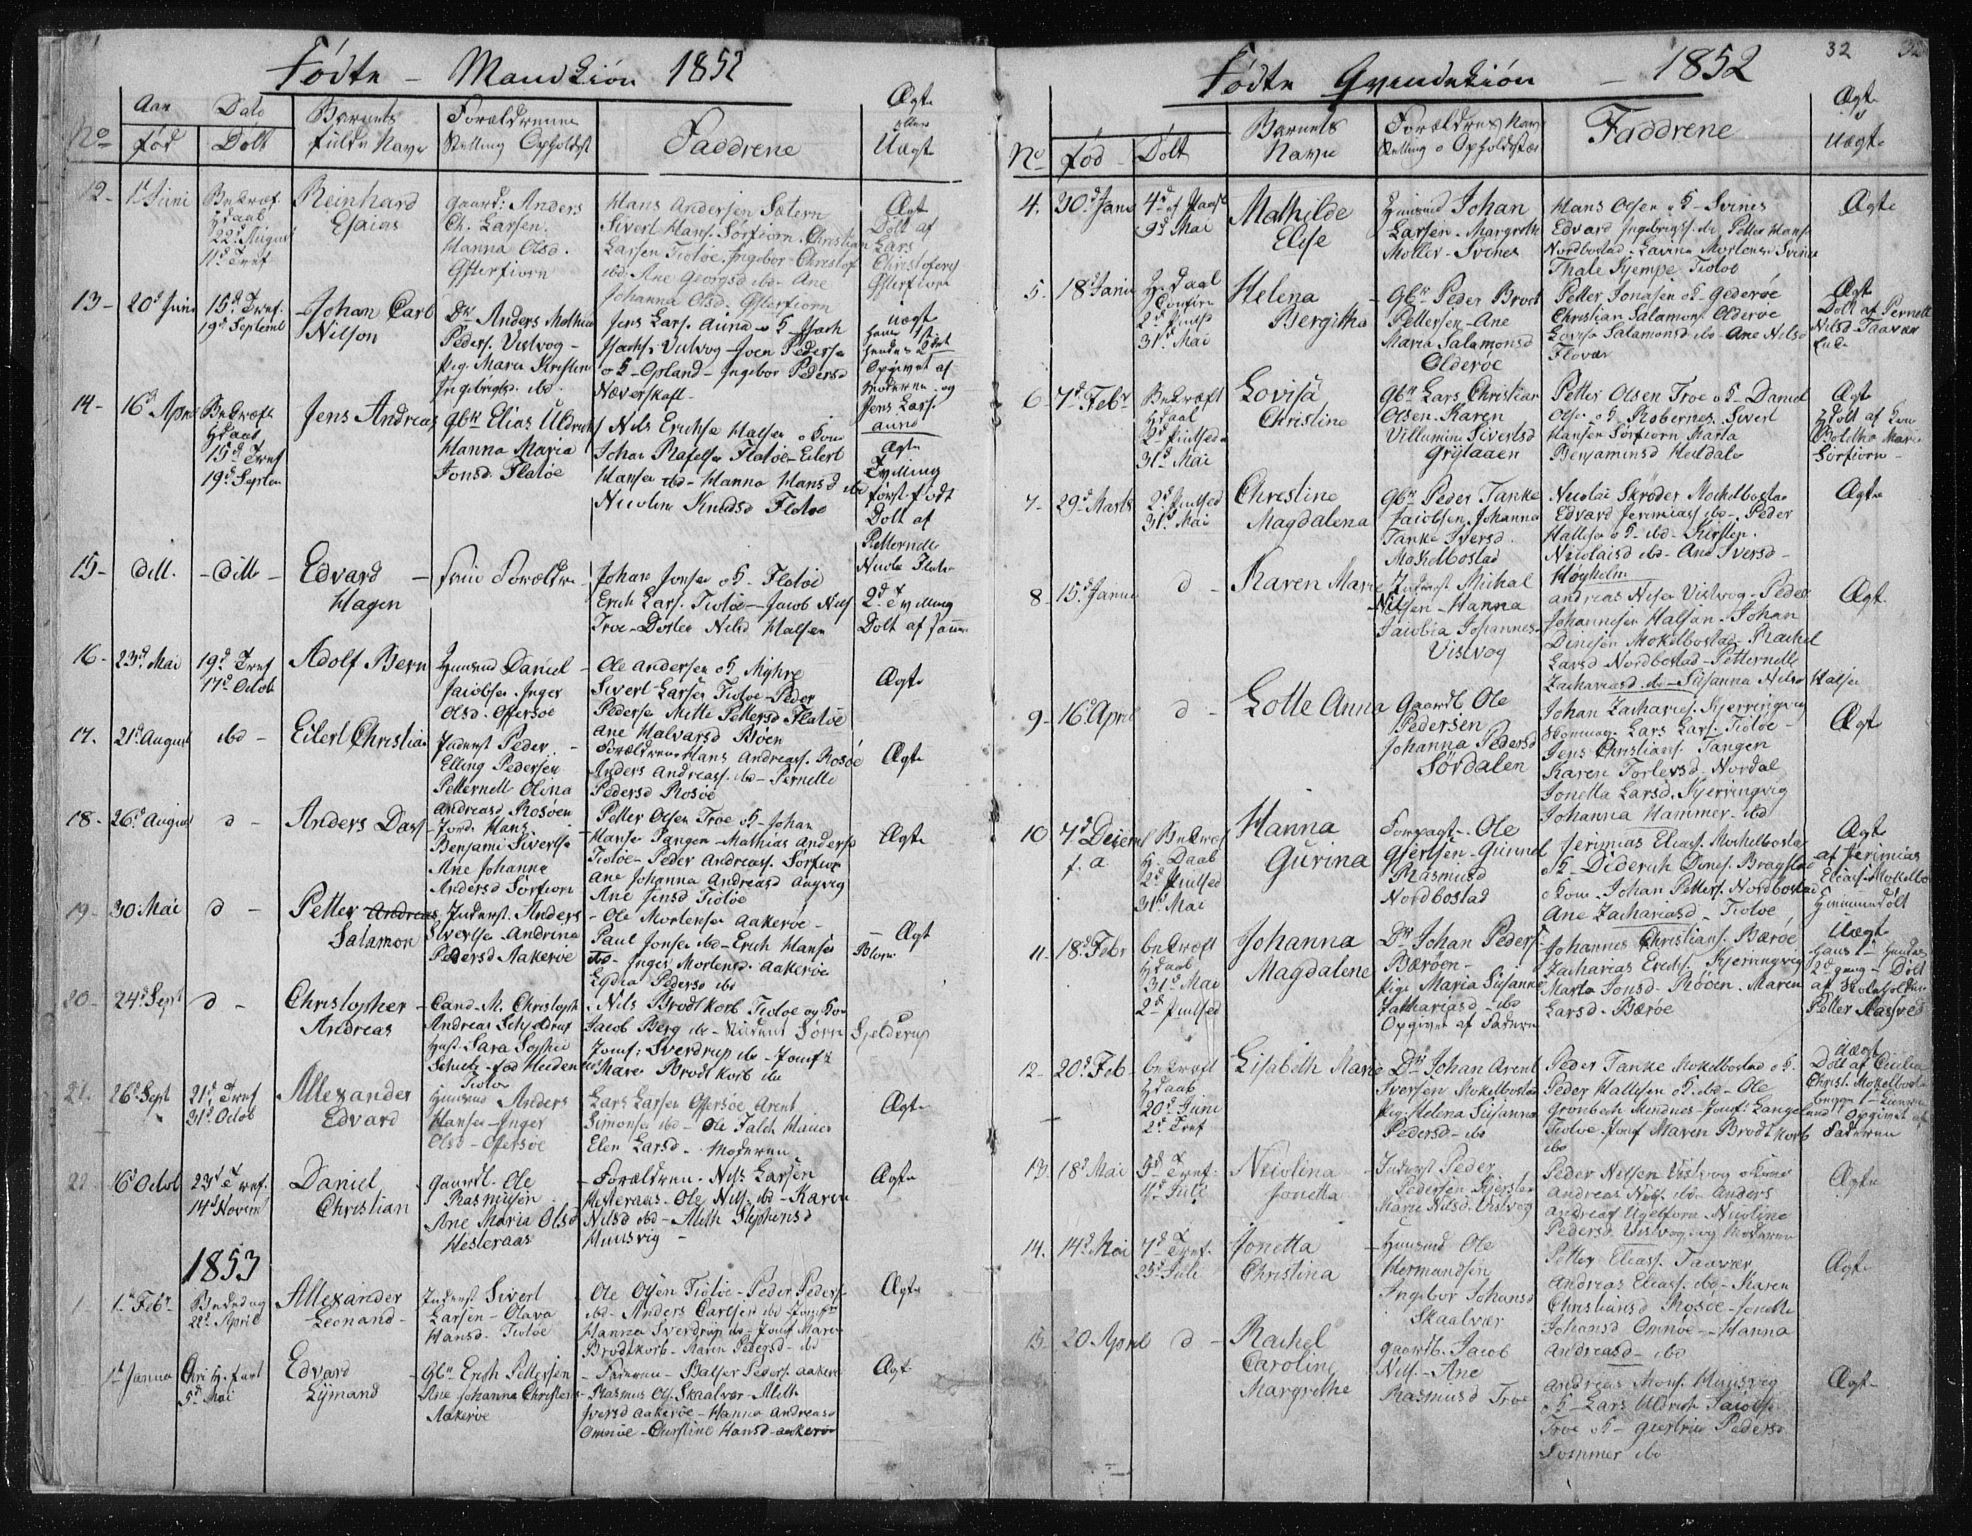 Fødte - Mandkiön 1852
No
Aar
Fød
Dato
Døbt
Barnets
fulde Navn
Forældrenne
Stelling Opholdst
Faddrene
Ægte
eller
Uægt
12 - 1d Juni
Bekræf.
H daab
22d August
11d Tref
Reinhard
Esaias
gaard: Anders
Ch. Larsen.
Hanna Olsd.
Offerfiorn
Hans Andersen Sætern
Sivert Hans. Sorfiorn. Christian
Larsen Tiotøe. Ingebor Christof
ibd. Ane Georgsd ibd. Ane
Johanna Olsd. Offerfiorn
Ægt
Døbt af
Lars
Christofers
Offerfiorn
13 - 20d Juni
15d Tref.
19d Septemb
Johan Carl
Nilson
Dr Anders Mathias
Peders. Vistvog -
Pig. Maria Kristin
Ingebrigtsd. ibd.
Jens Lars. auna
Vistvog - Joen Peders
o K - Opland - Ingebor Pedersd
Næverskaft -
uægt
hans 1st
hendes 2det
Opgivet af
Moderen og
Jens Lars.
auna
14 - 16d April
Bekræft
H daab
15d Tref
19d Septem
Jens Andreas
Gbr Elias Uldrichs
Hanna Maria
Jonsd. Flatøe
Nils Erichse Halsen o Kone
Johan Rafelse Flatøe - Eilert
Hansen ibd - Hanna Hansd ibd
Nicolin Knudsd Flatøe
Ægte
Tvilling
først født
Døbt af
Petternelle
Nicols Flatøe
15 - ditt. - ditt -
Edvard
Hagen
- samme Forældre -
Johan Jonsen o K - Flatøe
Erich Lars. Tiotøe - Jacob Nils
Troe - Dortea Nilsd Halsen
2d Tvilling
Døbt af samme
16 - 23d Mai
19d Tref
17d Octob
Adolf Bern
Huusmd Daniel -
Jacobsen. Inger
Olsd. Offersøe
Ole Andersen o K Myhre
Sivert Larsen Tiotøe - Peder
Pederse Mette Pettersd Flatøe
Ane Halvarsd Bøen
Ægte
17. 21d August ibd -
Eilert Christian
Inderst Peder -
Elling Pedersen
Petternell Olina
Andreasd Rosøen
Forældrene Hans Andreass. Rosøe
Anders Andreass. ibd - Pernelle
Pedersd Rosøe
Ægte
18 - 26d August d -
Anders Dass
Jordb Hans
Benjami Sivertse
Ane Johanna
Andersd Sorfiorn
Petter Olsen Troe o K - Johan
Hanse Tangen - Mathias Anderse
Tiotøe - Peder Andreass. Sorfior
Ane Johanna Andreasd Augvig
Ane Jensd Tiotøe
Ægte
19 - 30 Mai d -
Petter Andreas
Salamon
Inderst. Anders
Sivertse Andrina
Pedersd Aakerøe
- Ole Mortensen Aakerøe -
Paul Jonsen ibd - Erich Hansen
ibd - Inger Mortensd. Aakerøe
Lydia Pedersd ibd
Ægt
20 - 24d Sept d -
Christopher -
Andreas
Cand. M. Christoph
Andreas Schjeldrup
Hust. Sara Sophie
Schultz - fød Heiden
Tiotøe
Nils Brodtkorb Tiotøe og Kone
Jacob Berg ibd - Student Sørn Sjelderup
Jomf: Sverdrup ibd - Jomf:
Mare Brodtkorb ibd
21. 26d Sept
21d Tref
31d Octob
Allexander
Edvard
Huusmd Anders
Hansen - Inger
Olsd - Offersøe
Lars Larsen Offersøe Arent
Simonsen ibd - Ole Falch Hauen
Elen Larsd - Moderen
Ægte
22 6d Octob
23d Tref.
14d Novem
Daniel
Christian
gaardb. Ole
Rasmusen
Ane Maria Olsd
Hesteraas
- Forældrene - Nils Larsen
Hesteraas - Ole Nils. ibd - Karen
Nilsd ibd - Meth Stephensd
Huusvig -
Ægte
1853
1. 1d Febr
Bededag
22d April
Allexander
Leonard -
Inderst Sivert
Larsen - Olava
Hansd. Tiotøe
Ole Olsen Tiotøe - Peder Peders.
ibd - Anders Carlsen ibd - Jomf
Hanna Sverdrup ibd - Jomf Mare
Brodtkorb - Maren Pedersd - ibd
Ægte
1d Janua
Chri H. fart
5d Mai
Edvard
Lymand
Gbr Erich Pettersen
Ane Johanna Christens
Aakerøe
- Faderen - Balser Peders. Aaker
- Rasmus Ols. Skaalvær - Meth
Iversd Aakerøe - Hanna Andreasd
Omnøe - Cirstine Hansd - Aakerøe
Ægt
32
Fødte Qvindekiön - 1852
No
Fød
Døbt
Barnets
Navn
Forældres Navn
Stelling o Opholdsted
Faddrene
Ægte
Uægte
4. 30d Janu
9d Mai
Mathilde
Elise
Huusmd Johan
Larsen - Margrethe
Møller - Svines
Hans Olsen o K - Svines
Edvard Ingebrigts. ibd - Petter Hans
Nordbostad - Lavina Mortensd Svines
Thale Kjempe Tiotøe
Ægte
5 - 18d Janu
H. daab
Confir
2d Pintsd
31d Mai
Helena
Bergitha
Gbr Peder Brodt
Pettersen - Ane
Maria Salamonsd
Olderøe
Petter Jonasen o K - Gederøe
Christian Salamons. Olderøe
Lovise Salamonsd ibd - Ane Nilsd
Flovær
Ægt
Døbt af Pernelle
Nilsd - Taavær
6 - 7d Febr
Bekræft
H daab
2d Pintsed
31d Mai
Lovisa
Christine
Gbr Lars Christian
Olsen. Karen
Villumine Sivertsd
Grytaaen
Petter Olsen Troe o K - Daniel
Olse o K - Robernes. Sivert
Hansen Sorfiorn Marta
Benjaminsd Heildalo
Ægt
Døbt af
Marie
Sorfiorn -
7 - 29d Marts
2d Pintsed
31d Mai
Christine
Magdalena
Gbr Peder Tanke
Jacobsen. Johanna
Tanke Iversd.
Mokelbostad
Nicolai Skrøder Mokelbostad
Edvard Jerimias ibd - Peder
Hallesen o K - ibd - Kirsten.
Nicolaisd ibd - Ane Iversd -
Høyholm
Ægte
8 - 15d Janu d -
Karen Marie
Inderst Michal
Nilsen - Hanna
Jacobia Johannes.
Vistvog
Andreas Nilsen Vistvog - Peder
Johannesen Halsen - Johan
Dinesen Mokelbostad - Rachel
Larsd Nordbostad - Petternelle
Zachariasd ibd - Susanna Nilsd Halsen
Ægt.
9 - 16d April d -
Lotte Anna
Gaardb Ole
Pedersen
Johanna Pedersd
Sördalen
Johan Zacharies. Kjerringvig
Skommag. Lars Lars. Tiotøe -
Jens Christians. Tangen
Karen Torlevsd - Nordal
Jonetta Larsd. Kjerringvig
Johanna Hammer - ibd
Ægt
10 7d Decem
f. a
Bekræf
H. Daab
2d Pintsed
31d Mai
Hanna
Gurina
Forpagt. Ole
Gjertsen - Gunnel
Rasmusd
Nordbostad
Jerimias Eliass. Mochelbostad
o K - Diderich Dines. Brogstad
o Kone. Johan Petters. Nordbostad
Ane Zachariasd - Tiotøe
Ægt
af Jerimias
Eliass. Mokelbo
Hiemmedøbt
11. 18d Febr
Bekræft
H daab
31d Mai
2d Pintsed
Johanna
Magdalene
Dr Johan Peders.
Bærøen -
Pige Maria Susanna
Zakhariasd - ibd
Opgivet af Faderen
Johannes Christians. Bærøe
Zacharias Erichs. Kjerringvig
Marta Jonsd - Røöen. Maren
Larsd. Bærøe
Uægt
Hans 1 - hendes
2d gang - Døbt
af Skoleholder
Petter
12 - 20d Feb
bekræft
H daab
20d Juni
2d Tref
Lisabeth Marie
Dr Johan Arent
Iversen Mokelbostad
Pig. Helena Susanna
Pedersd - ibd
Peder Tanke Mokelbostad o K.
Peder Hallesen o K. ibd - Ole
Grønbech Mindnes - Jomf: Langelund
Tiotøe - Jomf Maren Brodtkorb
ibd
Uægt
Døbt af Cicilia
Christ. Mokelbosta
Opgivet af
Faderen
13. 18d Mai
5d Tref.
4d Juli
Nicolina
Jonetta
Inderst Peder
Pedersen Kjerster
Marie Nilsd. Vistvog
Peder Nilsen Vistvog o Kone
Andreas Nils. ibd. Anders
Andreas Ugelforn Nicoline
Pedersd. Vistvog. og Moderen
Ægte
14. 14d Mai
7d Tref.
25d Juli
Jonetta
Christina
Huusmd Ole
Hermandsen
Ingebor Johansd
Skaalvær
Petter Eliass. Taavær
Andreas Eliass. ibd - Karen
Christiansd Rosøe - Jonetha
Johansd Omnøe - Hanna
Andreasd - ibd
Ægte
15. 20 April d -
Rachel
Caroline
Margrethe
gaardb. Jacob
Nils. - Ane
Rasmusd Troe
Andreas Mons. Huusvig
o K - Lars Uldrich Jacobs.
Troe o K - Giertrue Pedersd
Sommer ibd
Ægt -